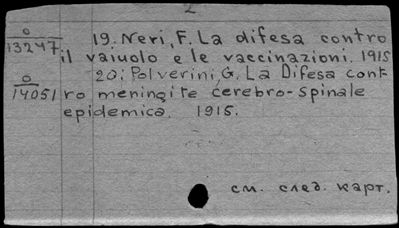 2
O 19. Neri, F. La difesa contro
13247 il vaiuolo e le vaccinazioni. 1915
O 20. Polverini, G. La Difesa cont-
14051 ro meningite cerebro-spinale
epidemica. 1915.
см. след. карт.